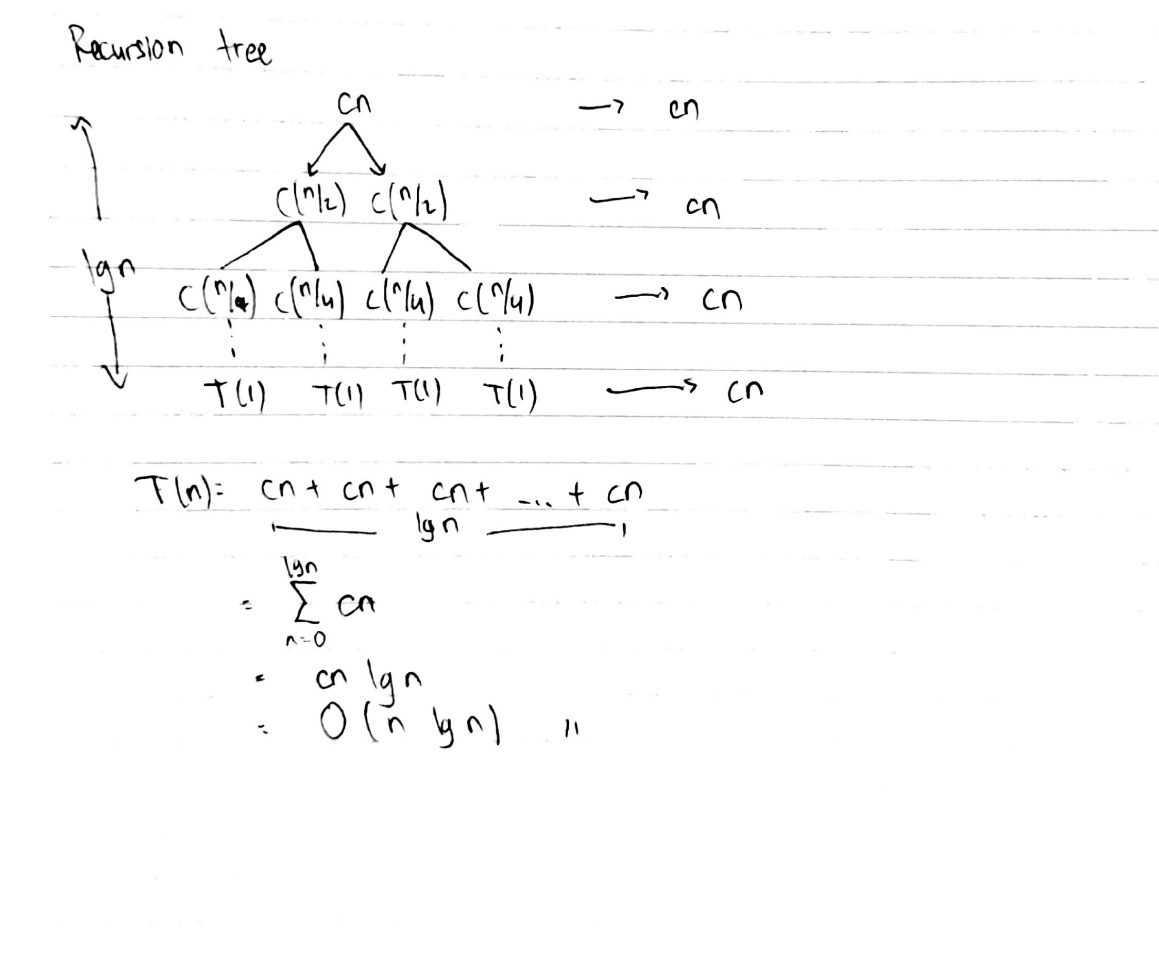 Recursion tree
cn → cn
c(n/2) c(n/2) → cn
lgn
c(n/4) c(n/4) c(n/4) c(n/4) → cn
T(1) T(1) T(1) T(1) → cn
T(n)= cn + cn + cn + .... + cn
lgn
lgn
= Σ cn
n=0
= cn lgn
= O(n lgn) "